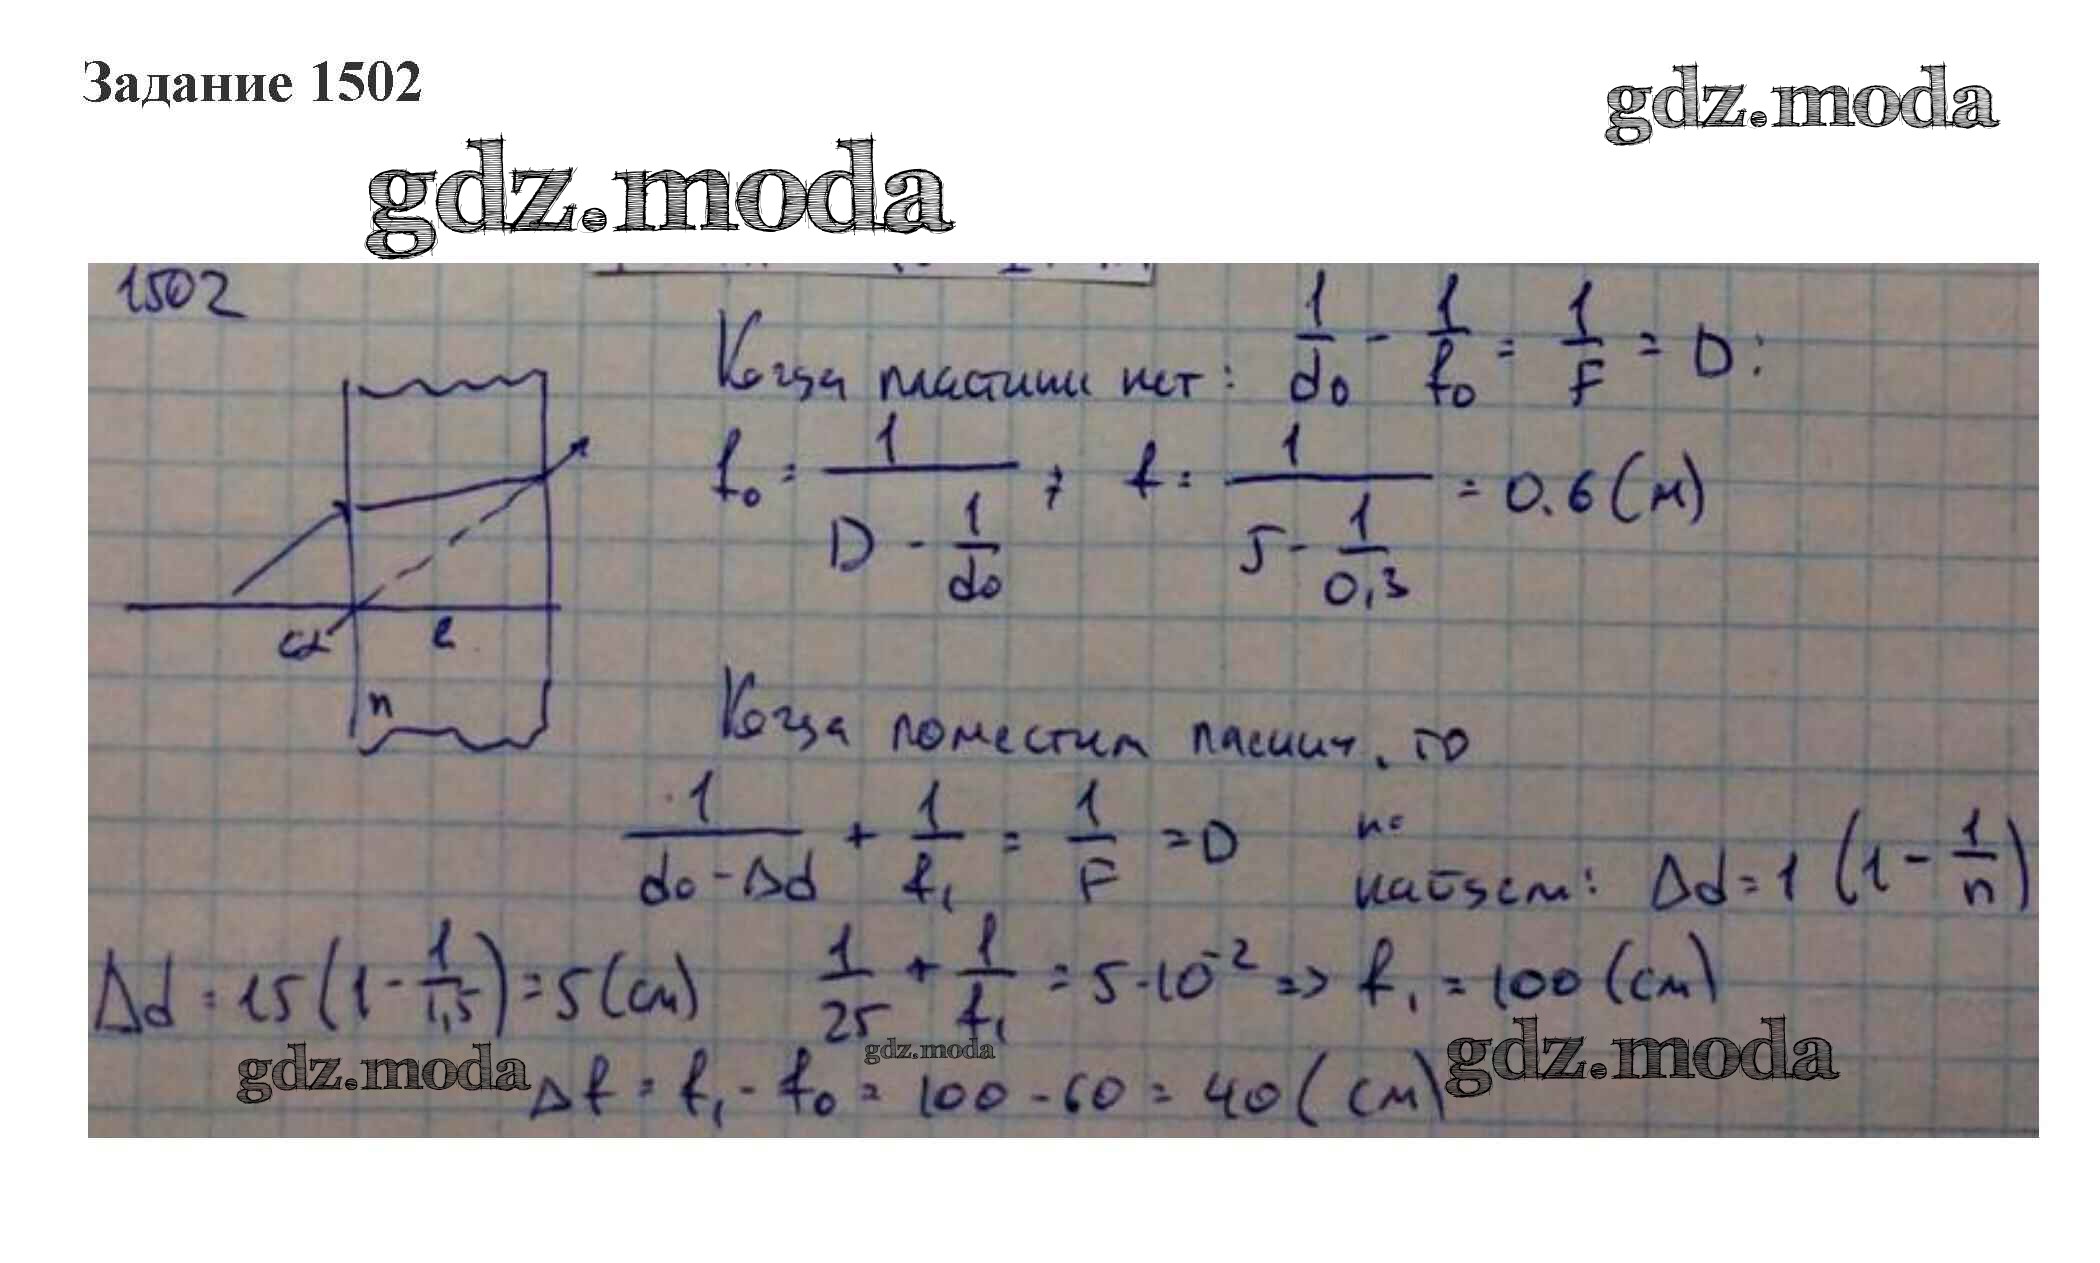 Задание 1502
gdz.moda
gdz.moda
1502
Когда пластины нет: 1/d₀ - 1/f₀ = 1/F = D:
f₀ = 1/(D - 1/d₀) ; f = 1/(5 - 1/0,3) = 0.6 (м)
α
l
n
Когда поместим, то
1/(d₀ - Δd) + 1/f₁ = 1/F = D
найдем: Δd = 1 (1 - 1/n)
Δd = 15 (1 - 1/1,5) = 5 (см) 1/25 + 1/f₁ = 5·10⁻² => f₁ = 100 (см)
gdz.moda
gdz.moda
gdz.moda
Δf = f₁ - f₀ = 100 - 60 = 40 (см)